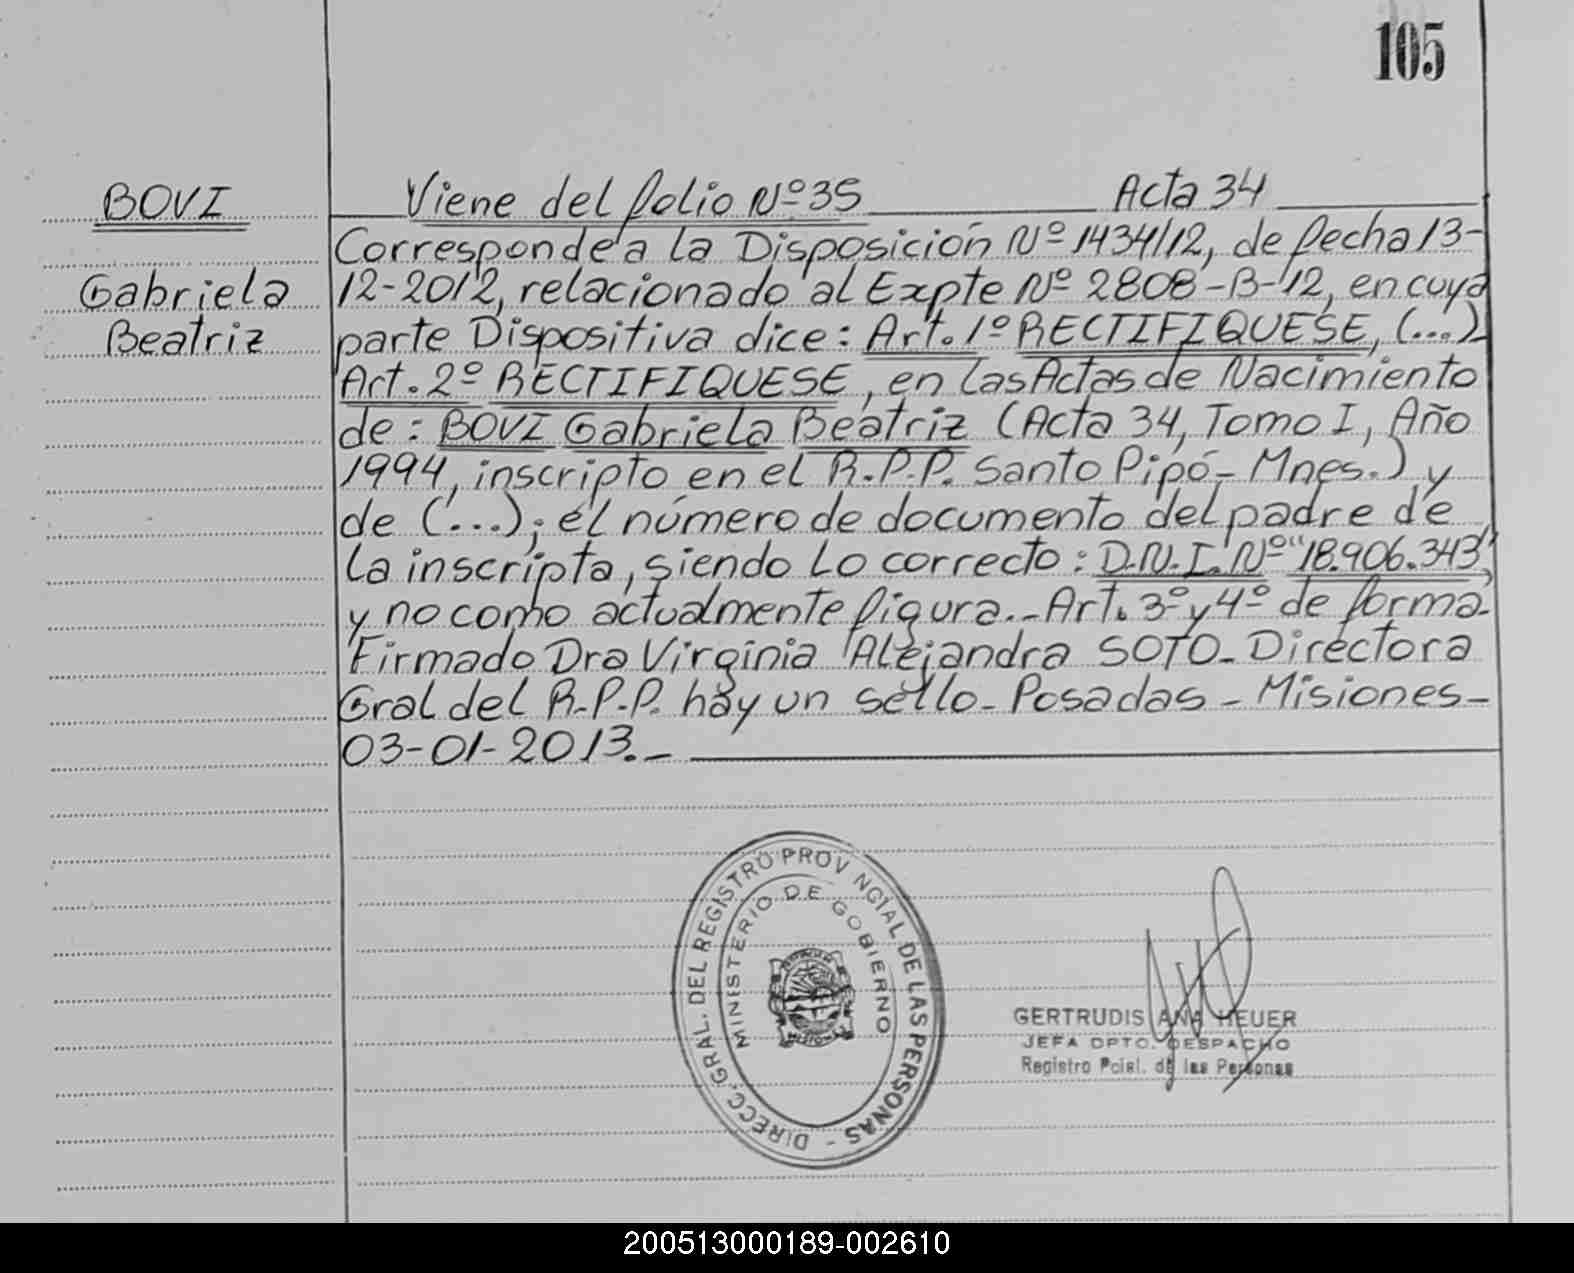 105
BOVI
Gabriela
Beatriz
Viene del folio Nº 35 Acta 34
Corresponde a la Disposición Nº 1434/12, de fecha 13-
12-2012, relacionado al Expte Nº 2808-B-12, en cuya
parte Dispositiva dice: Art. 1º RECTIFIQUESE, (...)
Art. 2º RECTIFIQUESE, en las Actas de Nacimiento
de: BOVI Gabriela Beatriz (Acta 34, Tomo I, Año
1994, inscripto en el R.P.P. Santo Pipó- Mnes.) y
de (...); el número de documento del padre de
la inscripta, siendo lo correcto: D.N.I. Nº "18.906.343",
y no como actualmente figura.- Art. 3º y 4º de forma-
Firmado Dra Virginia Alejandra SOTO- Directora
Gral del R.P.P. hay un sello- Posadas - Misiones-
03-01-2013.-
DIRECC. GRAL. DEL REGISTRO PROV NCIAL DE LAS PERSONAS -
MINISTERIO DE GOBIERNO
GERTRUDIS ANA HEUER
JEFA DPTO. DESPACHO
Registro Pcial. de las Personas
200513000189-002610